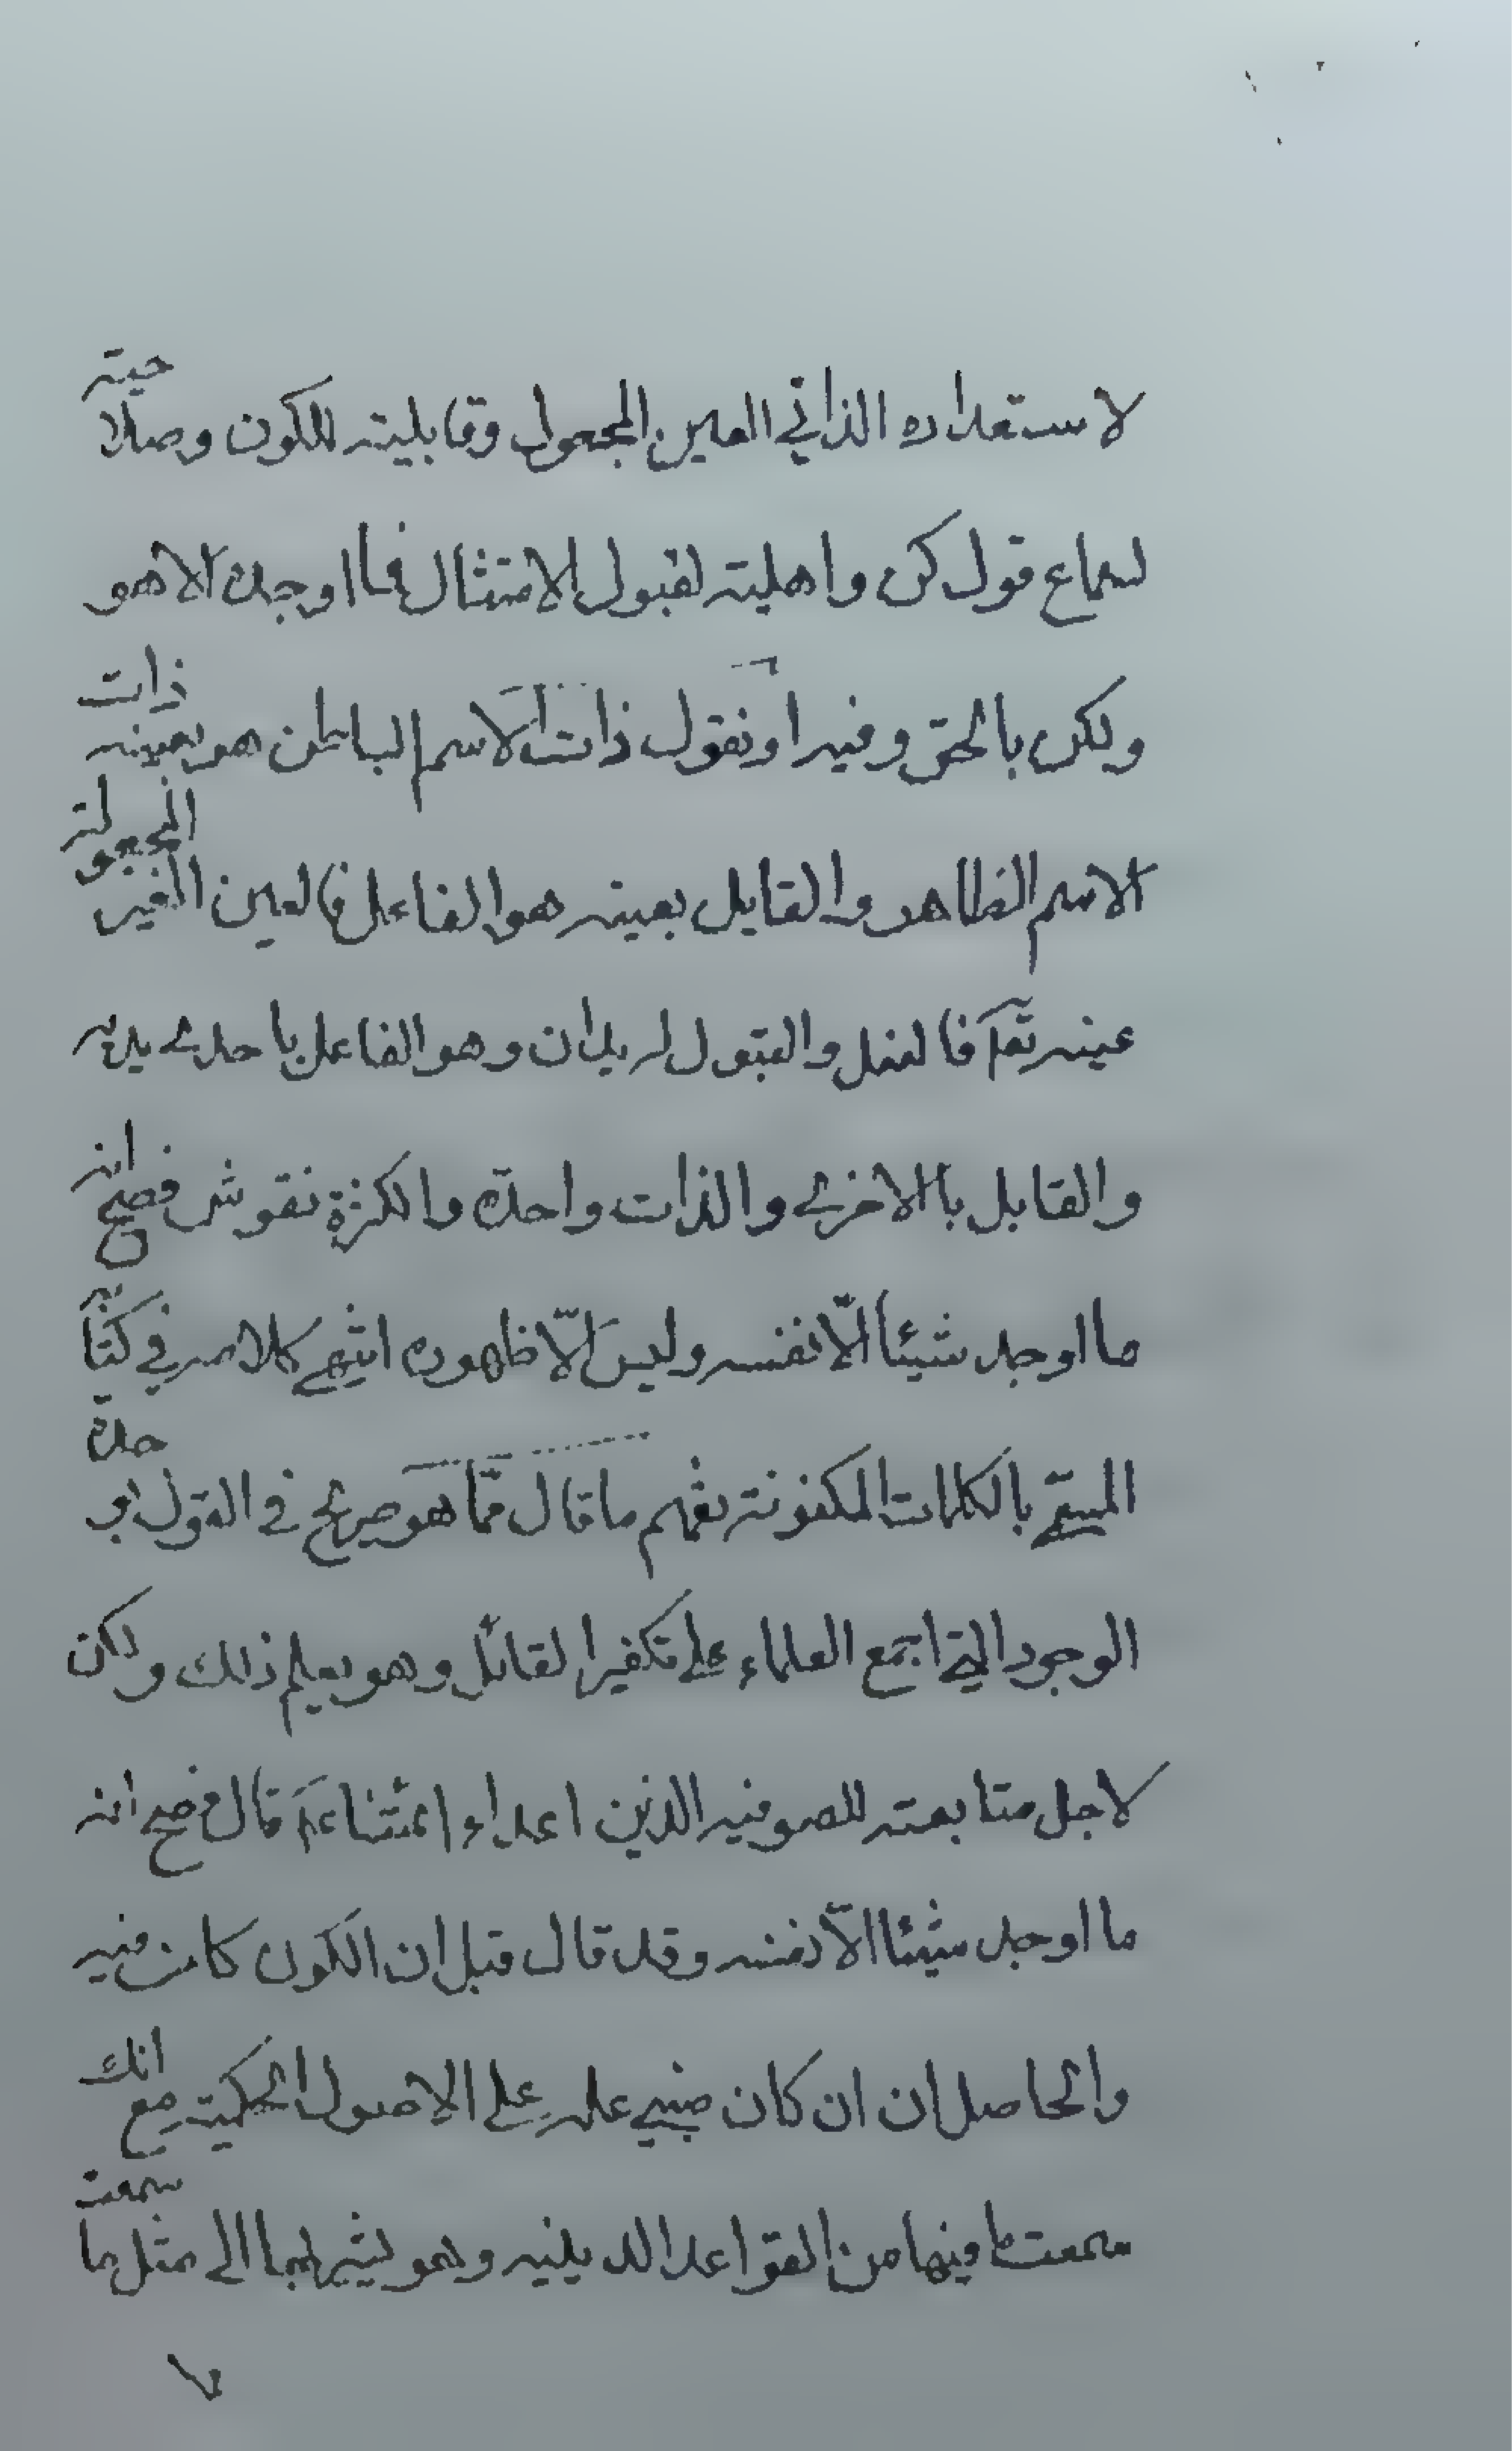 لاستعداده الذاتي العين المجعول وقابليته للكون وصلاحيته
لسماع قول كن واهليته لقبول الامتثال فما اوجده الا هو
ولكن بالحق وفيه او نقول ذات الاسم الباطن هو بعينه ذات
الاسم الظاهر والقابل بعينه هو الفاعل فالعين الغير المجعولة
عينه تعالى فالفعل والقبول له يدان وهو الفاعل باحدى يديه
والقابل بالاخرى والذات واحدة والكثرة نقوش فصح انه
ما اوجد شيئا الّا نفسه وليس الّا ظهوره انتهى كلامه في كتابه
المسمّى بالكلمات المكنونة تفهم ما قال ممّا هو صريح في القول بوحدة
الوجود التي اجمع العلماء على تكفير القائل وهو يعلم ذلك ولكن
لاجل متابعته للصوفيه الذين اعداء ائمتنا عم قال فصح انه
ما اوجد شيئا الّا نفسه وقد قال قبل ان الكون كامن فيه
والحاصل ان ان كان مبنى علمه على الاصول الحكمية مع انك
سمعت ما فيها من القواعد الدينيه وهو يشير بها الى مثل ما سمعت